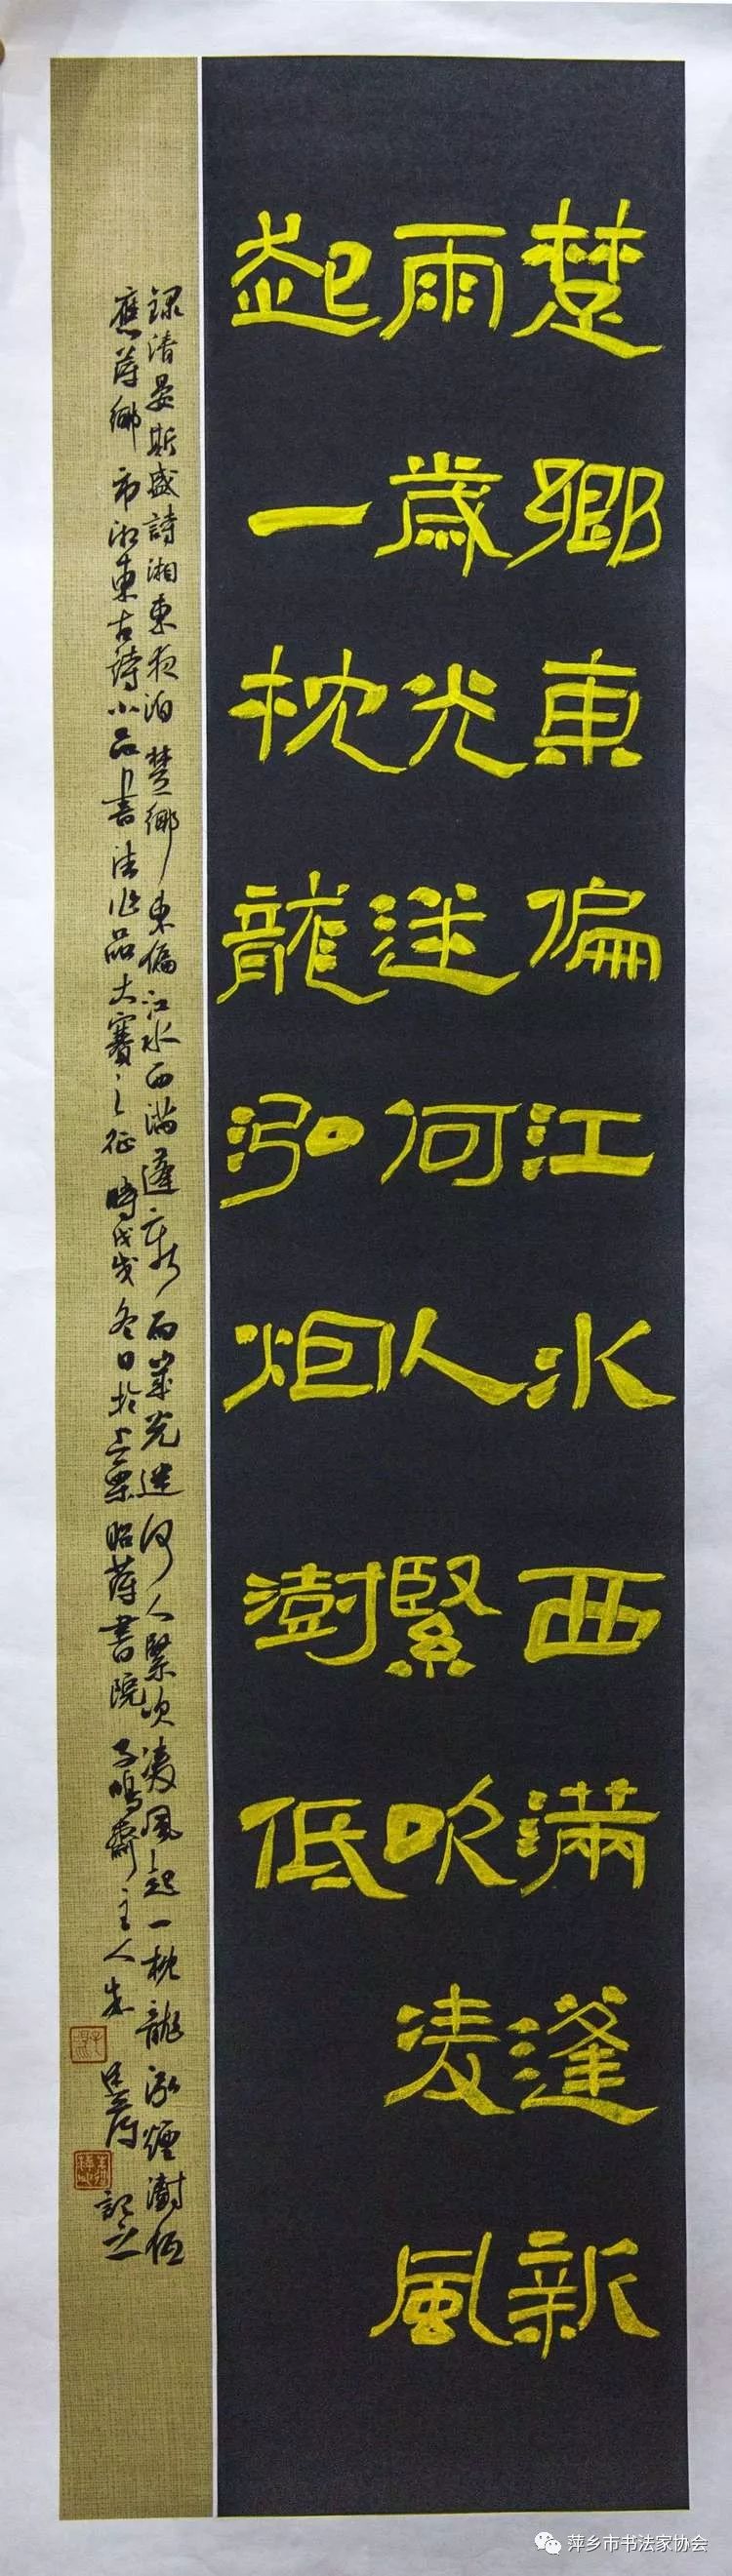 楚鄉東偏江水西滿蓬新
雨歳光送何人緊吹凌風
起一枕龍泓炬澍低
録清晏斯盛詩湘東夜泊楚鄉東偏江水西滿蓬新雨歲光送何人緊吹凌風起一枕龍泓煙澍低
應萍鄉市湘東古詩小品書法作品大賽之征時戊戌冬日於上栗昭萍書院子鳴齋主人朱記之
萍乡市书法家协会